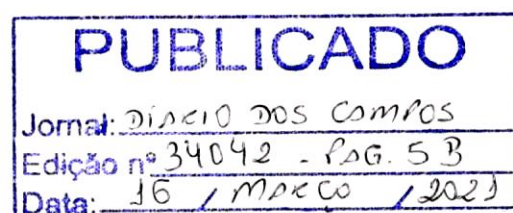 PUBLICADO
Jornal: DIÁRIO DOS CAMPOS
Edição nº 34042 - PÁG. 5B
Data: 16 / MARÇO / 2021